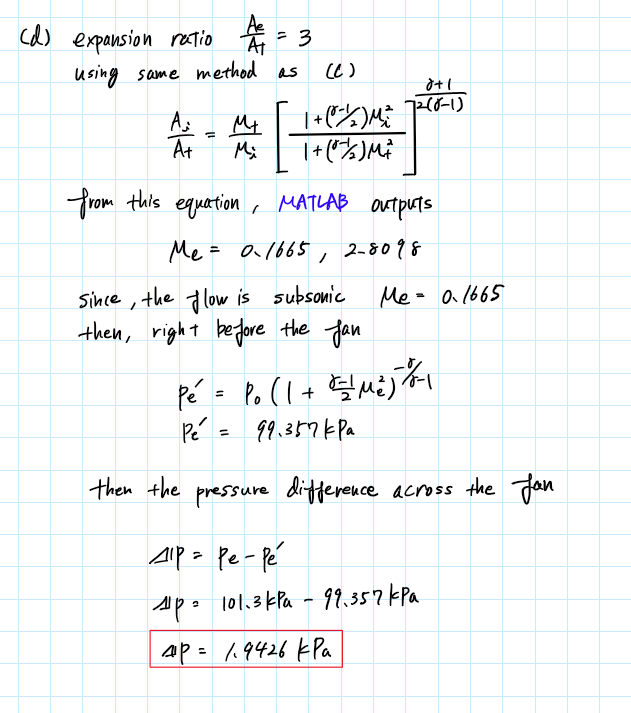 (d) expansion ratio Ae/At = 3
using same method as (c)
Ai/At = Mt/Mi [ (1+(γ-1/2)Mi²) / (1+(γ-1/2)Mt²) ]^(γ+1 / 2(γ-1))
from this equation, MATLAB outputs
Me = 0.1665, 2.8098
since, the flow is subsonic Me = 0.1665
then, right before the fan
Pe´ = P₀ (1 + γ-1/2 Me²)^(-γ/γ-1)
Pe´ = 99.357 kPa
then the pressure difference across the fan
Δp = Pe - Pe´
Δp = 101.3 kPa - 99.357 kPa
Δp = 1.9426 kPa